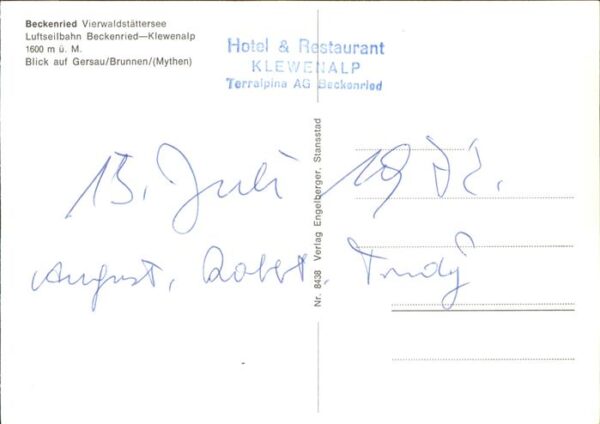 Beckenried Vierwaldstättersee
Luftseilbahn Beckenried—Klewenalp
1600 m ü. M.
Blick auf Gersau/Brunnen/(Mythen)
Hotel & Restaurant
KLEWENALP
Terralpina AG Beckenried
13. Juli 1972.
August, Robert, Trudy
Nr. 8438 Verlag Engelberger, Stansstad